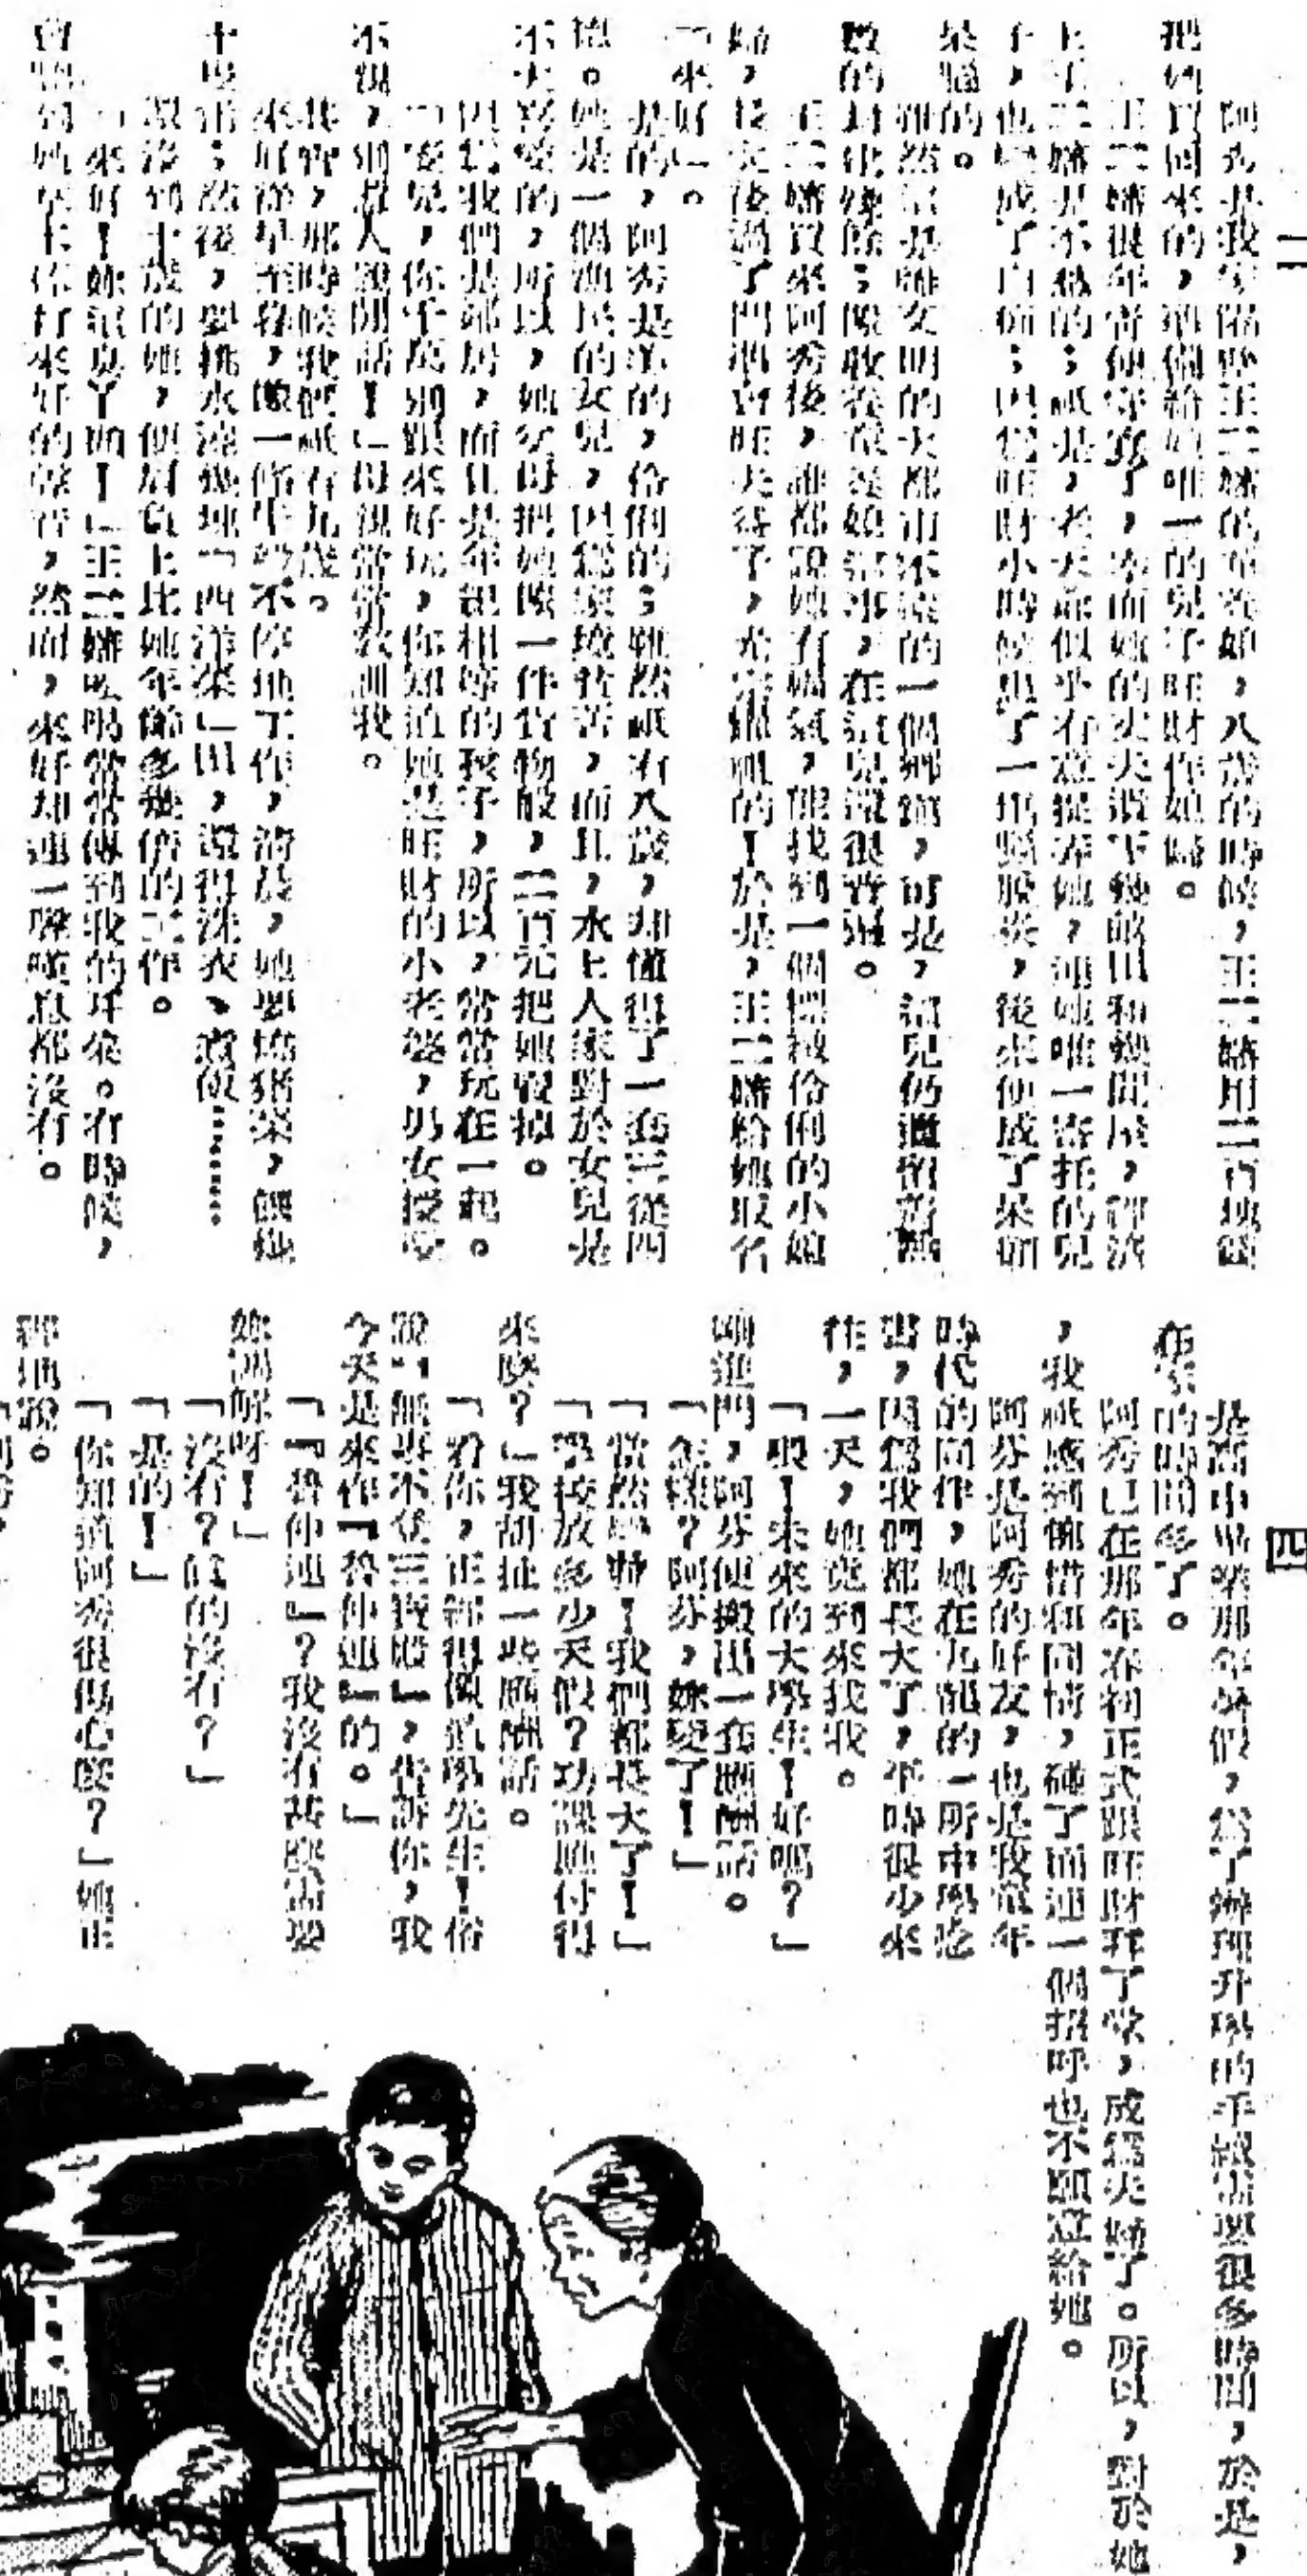 二
阿秀是我家隔壁王二嬸的童養媳,八歲的時候,王二嬸用二百塊錢
把她買回來的,準備給她唯一的兒子旺財作媳婦。
王二嬸很年青便守寡了,幸而她的丈夫遺下幾畝田和幾間屋,經濟
上王二嬸是不愁的;祇是,老天爺似乎有意捉弄她,連她唯一寄托的兒
子,也變成了白痴;因爲旺財小時候患了一場腦膜炎,後來便成了呆頭
呆腦的。
雖然這是離文明的大都市不遠的一個鄉鎮,可是,這兒仍遺留着舊
數的封建殘餘;像收養童養媳這事,在這兒還很普遍。
王二嬸買來阿秀後,誰都說她有福氣,能找到一個標緻伶俐的小媳
婦,長大後過了門準會旺夫益子,光宗耀祖的!於是,王二嬸給她取名
「來好」。
是的,阿秀是美的,伶俐的;雖然祇有八歲,却懂得了一套三從四
德。她是一個漁民的女兒,因爲家境貧苦,而且,水上人家對於女兒是
不大喜愛的,所以,她父母把她像一件貨物般,二百元把她賣掉。
因爲我們是鄰居,而且是年紀相等的孩子,所以,常常玩在一起。
「寧兒,你千萬別跟來好玩,你知道她是旺財的小老婆,男女授受
不親,別惹人說閒話!」母親常常教訓我。
其實,那時候我們祇有九歲。
來好從早至晚,像一條牛般不停地工作,清晨,她要搗豬菜,餵幾
十隻雞;然後,要挑水澆幾塊「西洋菜」田,還得洗衣、煮飯……
還沒到十歲的她,便肩負上比她年齡多幾倍的工作。
「來好!妳這臭丫頭!」王二嬸吆喝常常傳到我的耳朶。有時候,
會聽到她拿木棍打來好的聲音,然而,來好却連一聲嘆息都沒有。
四
是高中畢業那年暑假,爲了辦理升學的手續需要很多時間,於是,
在家的時間多了。
阿秀已在那年春初正式跟旺財拜了堂,成爲夫婦了。所以,對於她
,我祇感到惋惜和同情,碰了面連一個招呼也不願意給她。
阿芬是阿秀的好友,也是我童年
時代的同伴,她在九龍的一所中學唸
書,因爲我們都長大了,平時很少來
往,一天,她竟到來找我。
「喂!未來的大學生!好嗎?」
剛進門,阿芬便搬出一套應酬話。
「怎樣?阿芬,妳變了!」
「當然變啦!我們都長大了!」
「學校放多少天假?功課應付得
來麽?」我胡扯一些應酬話。
「看你,正經得像道學先生!俗
說:『無事不登三寶殿』,告訴你,我
今天是來作『魯仲連』的。」
「『魯仲連』?我沒有甚麽需要
妳調解呀!」
「沒有?眞的沒有?」
「是的!」
「你知道阿秀很傷心麽?」她正
經地說。